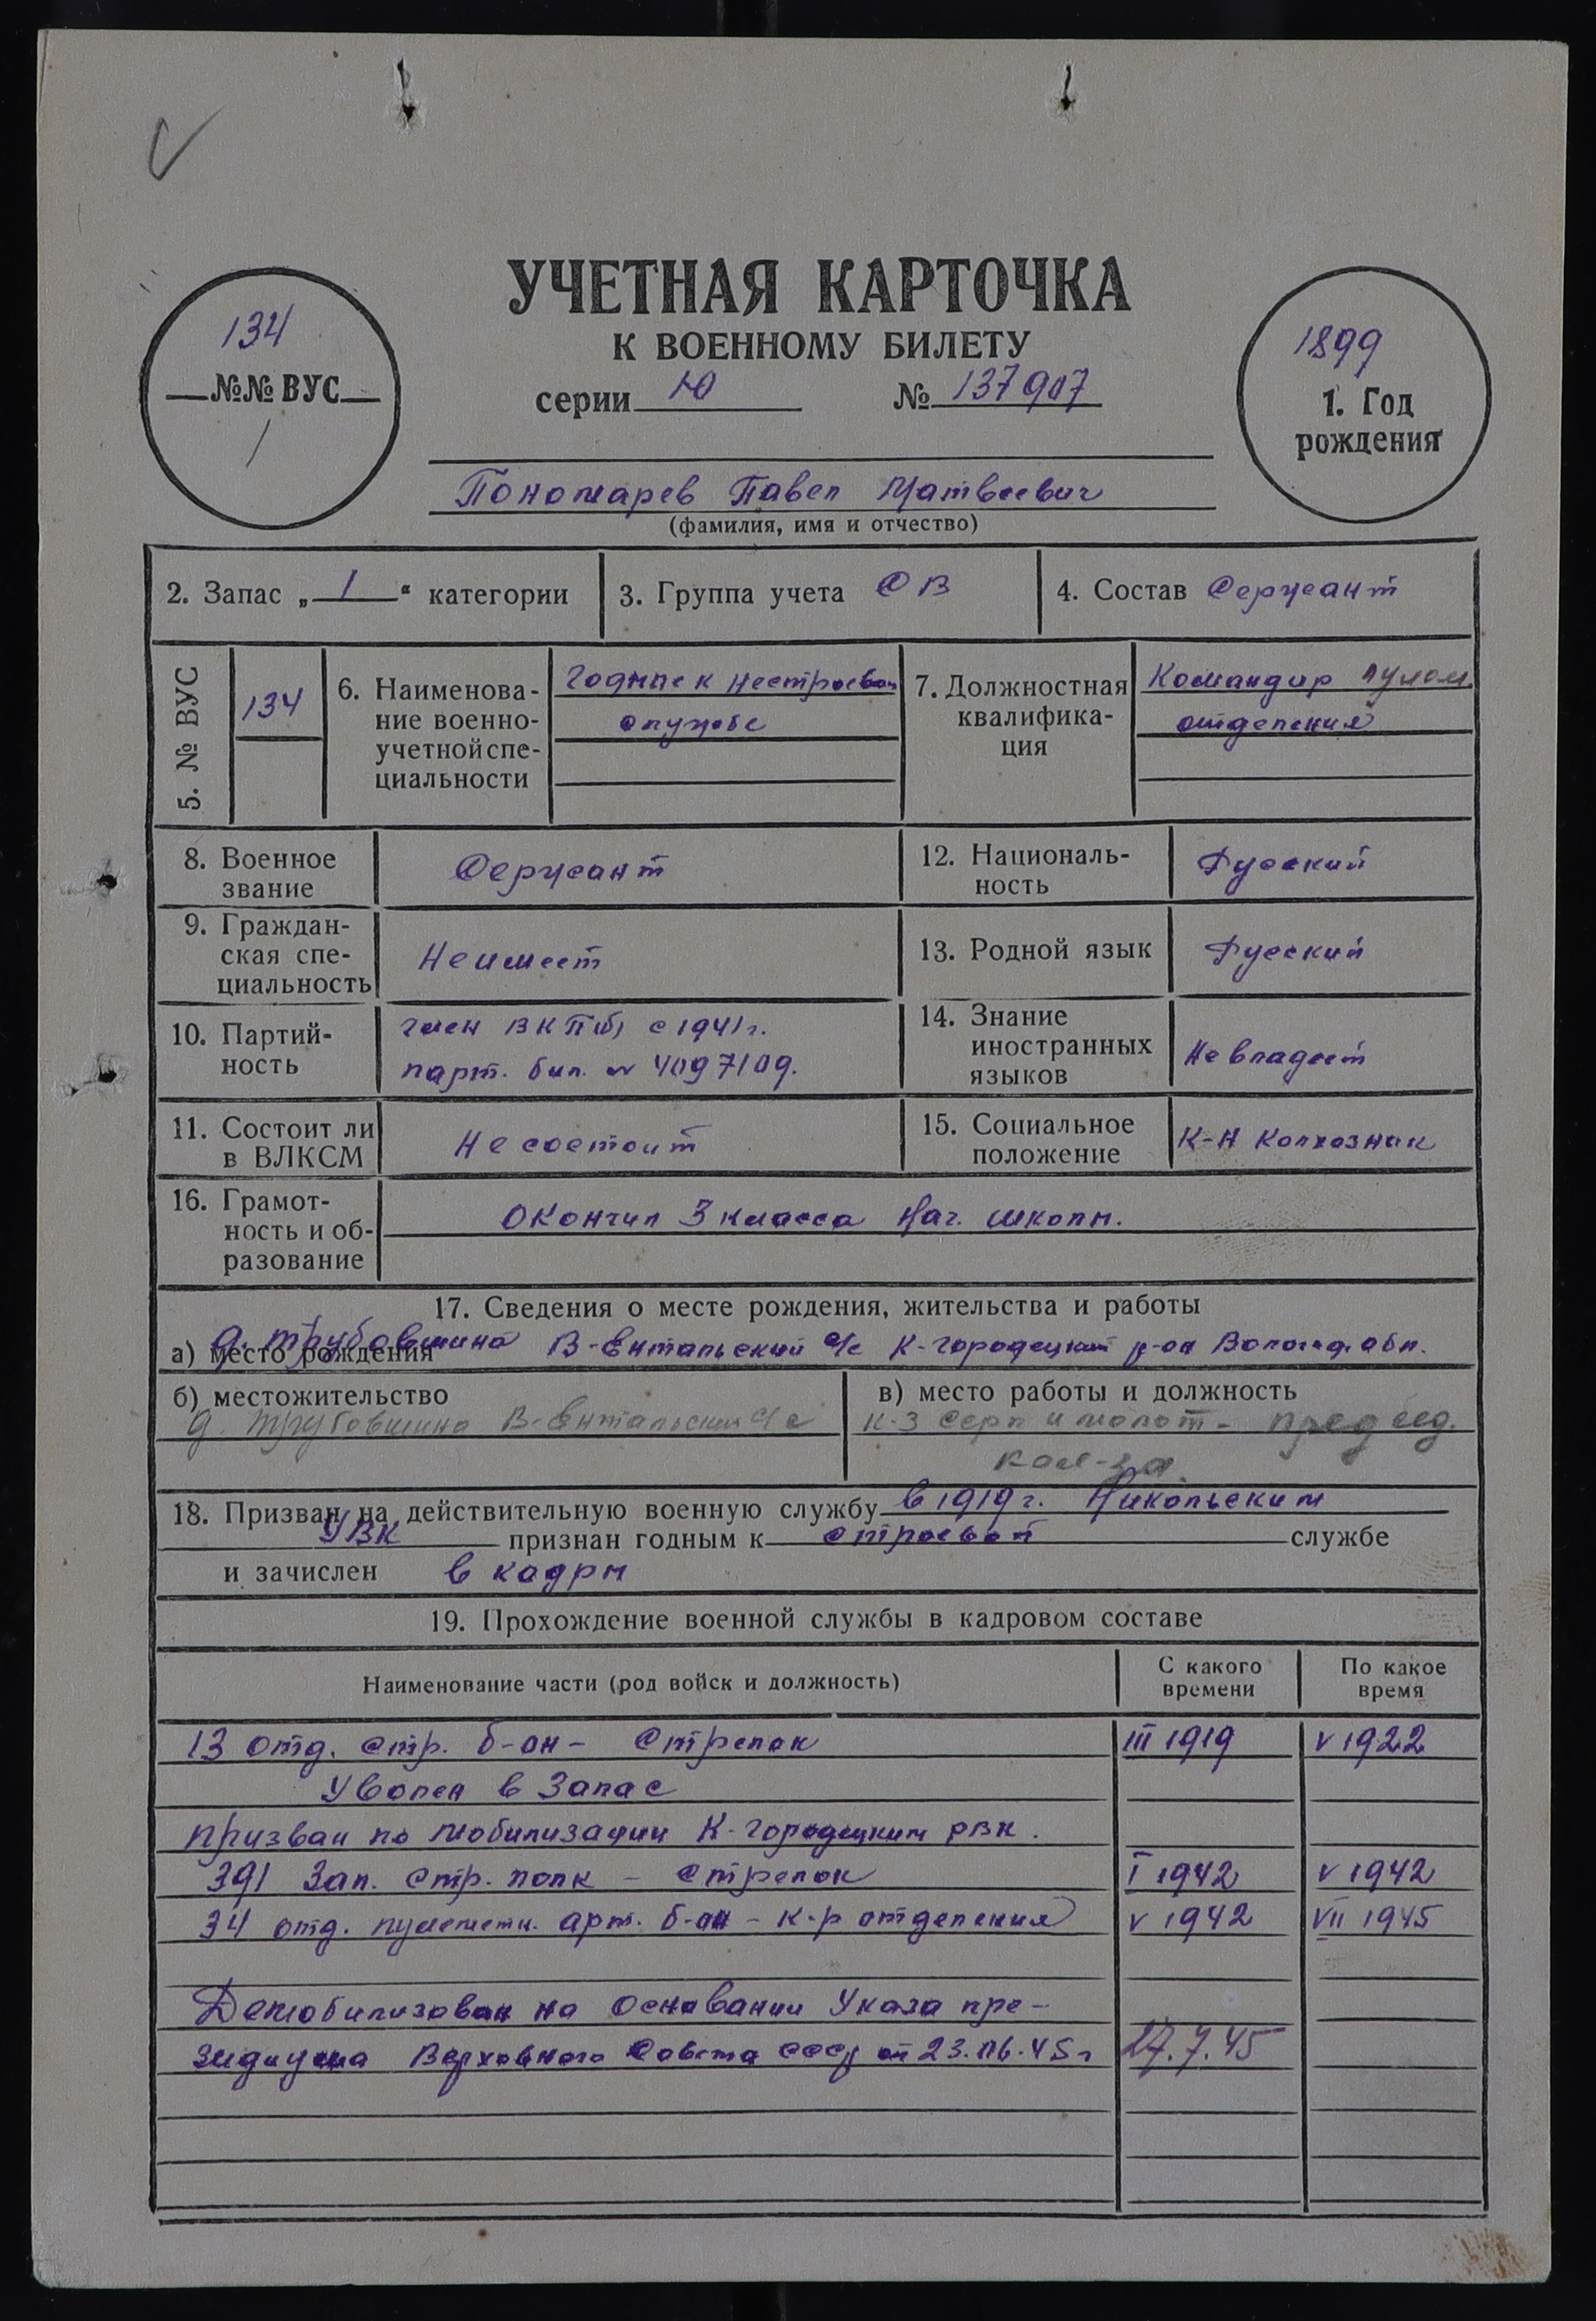 УЧЕТНАЯ КАРТОЧКА
К ВОЕННОМУ БИЛЕТУ
серии Ю № 137907
134
№№ ВУС
1899
1. Год
рождения
Пономарев Павел Матвеевич
(фамилия, имя и отчество)
2. Запас „ 1 “ категории
3. Группа учета СВ
4. Состав Сержант
5. № ВУС
134
6. Наименова-
ние военно-
учетной спе-
циальности
годные к нестроевой
службе
7. Должностная
квалифика-
ция
Командир пулом.
отделения
8. Военное
звание
Сержант
12. Националь-
ность
Русский
9. Граждан-
ская спе-
циальность
Неимеет
13. Родной язык
Русский
10. Партий-
ность
член ВКП(б) с 1941г.
парт. бил. № 4097109.
14. Знание
иностранных
языков
Не владеет
11. Состоит ли
в ВЛКСМ
Не состоит
15. Социальное
положение
К-Н Колхозник
16. Грамот-
ность и об-
разование
Окончил 3 класса Нач. школы.
17. Сведения о месте рождения, жительства и работы
а) место рождения д. Трубовшина В-Ентальский с/с К-городецкий р-он Вологод. обл.
б) местожительство
д. Трубовшина В-Ентальский с/с
в) место работы и должность
к-з Серп и молот - председ.
кол-за.
18. Призван на действительную военную службу в 1919г. Никольским
УВК признан годным к строевой службе
и зачислен в кадры
19. Прохождение военной службы в кадровом составе
Наименование части (род войск и должность)
С какого
времени
По какое
время
13 отд. стр. б-он - Стрелок III 1919 V 1922
Уволен в Запас
призван по мобилизации К-городецким РВК.
391 Зап. стр. полк - стрелок I 1942 V 1942
34 отд. пулеметн. арт. б-он - к-р отделения V 1942 VII 1945
Демобилизован на основании Указа пре-
зидиума Верховного Совета СССР от 23.06.45г 27.7.45